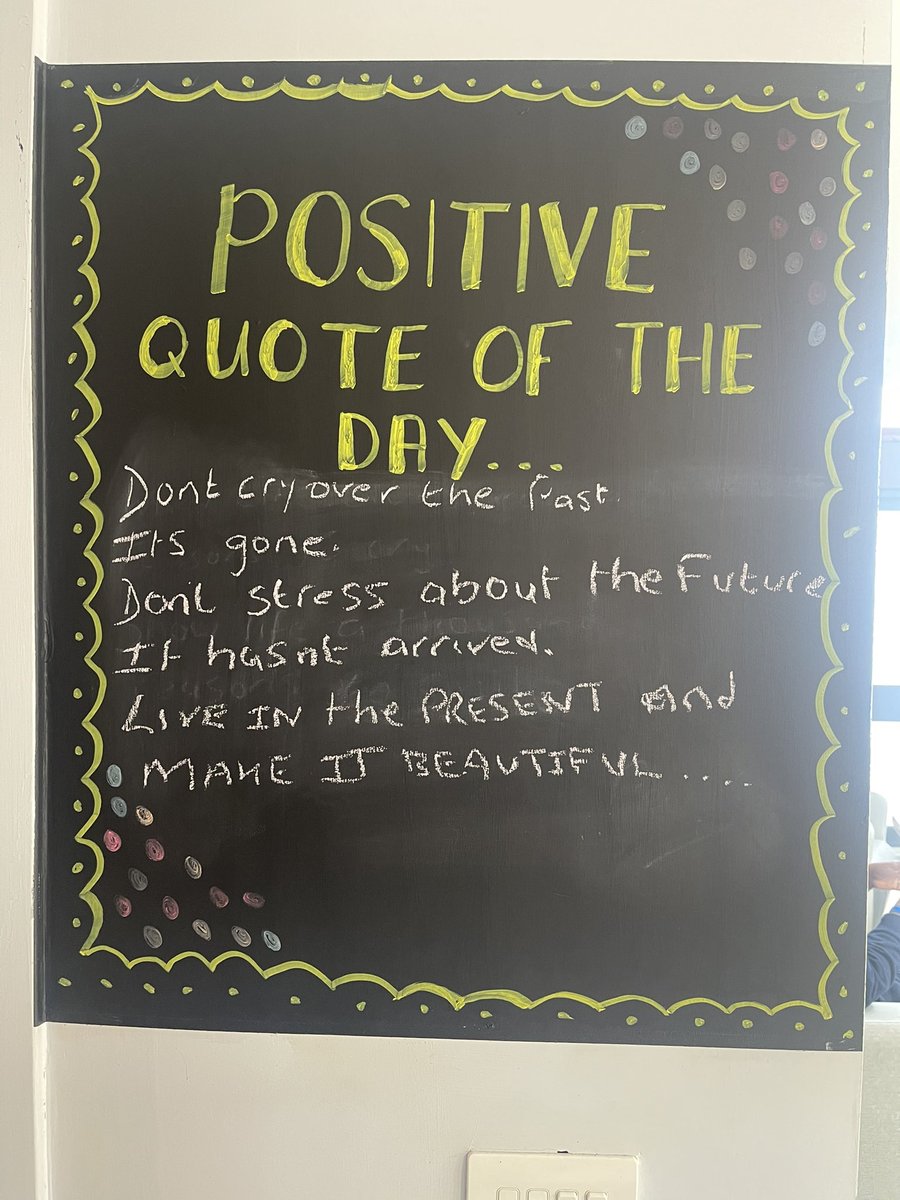 POSITIVE
QUOTE OF THE
DAY...
Dont cry over the Past.
Its gone.
Dont stress about the Future
It hasnt arrived.
LIVE IN the PRESENT and
MAKE IT BEAUTIFUL....